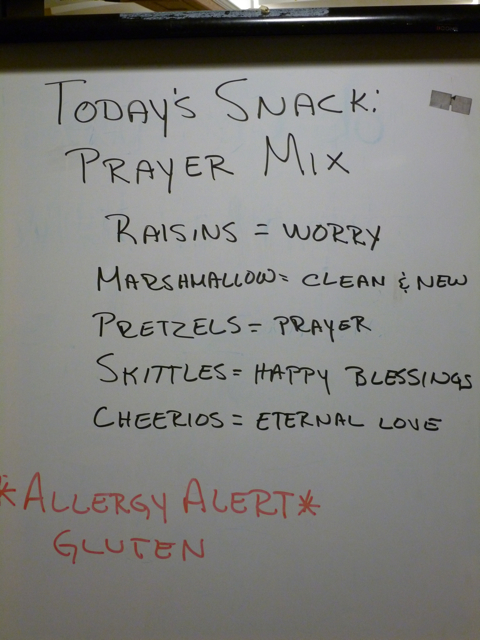 TODAY'S SNACK:
PRAYER MIX
RAISINS = WORRY
MARSHMALLOW = CLEAN & NEW
PRETZELS = PRAYER
SKITTLES = HAPPY BLESSINGS
CHEERIOS = ETERNAL LOVE
*ALLERGY ALERT*
GLUTEN